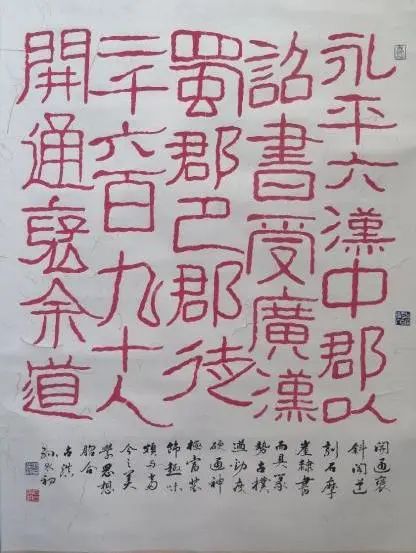 永平六漢中郡以
詔書受廣漢
蜀郡巴郡徒
二千六百九十人
開通褒余道
開通褒
斜閣道
刻石摩
崖隸書
而具篆
勢古樸
遒勁瘦
硬通神
極富裝
飾趣味
頗与當
今之美
學思想
脗合